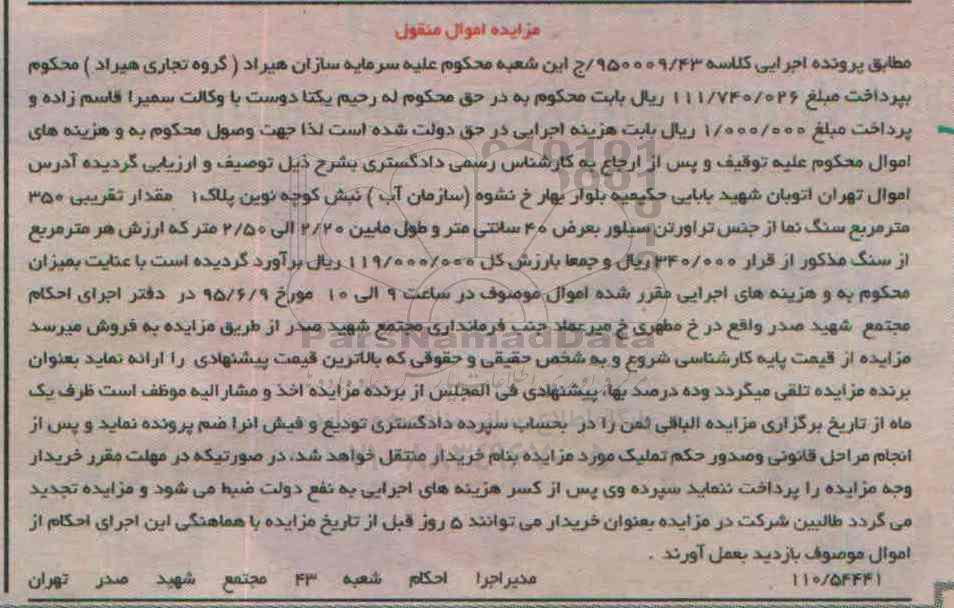 مزایده اموال منقول
مطابق پرونده اجرایی کلاسه ۹۵۰۰۰۹/۴۳/ج این شعبه محکوم علیه سرمایه سازان هیراد ( گروه تجاری هیراد ) محکوم
بپرداخت مبلغ ۱۱۱/۷۴۰/۰۲۶ ریال بابت محکوم به در حق محکوم له رحیم یکتا دوست با وکالت سمیرا قاسم زاده و
پرداخت مبلغ ۱/۰۰۰/۰۰۰ ریال بابت هزینه اجرایی در حق دولت شده است لذا جهت وصول محکوم به و هزینه های
اموال محکوم علیه توقیف و پس از ارجاع به کارشناس رسمی دادگستری بشرح ذیل توصیف و ارزیابی گردیده آدرس
اموال تهران اتوبان شهید بابایی حکیمیه بلوار بهار خ نشوه (سازمان آب ) نبش کوچه نوین پلاک۱ مقدار تقریبی ۳۵۰
مترمربع سنگ نما از جنس تراورتن سیلور بعرض ۴۰ سانتی متر و طول مابین ۲/۲۰ الی ۲/۵۰ متر که ارزش هر مترمربع
از سنگ مذکور از قرار ۳۴۰/۰۰۰ ریال و جمعا بارزش کل ۱۱۹/۰۰۰/۰۰۰ ریال برآورد گردیده است با عنایت بمیزان
محکوم به و هزینه های اجرایی مقرر شده اموال موصوف در ساعت ۹ الی ۱۰ مورخ ۹۵/۶/۹ در دفتر اجرای احکام
مجتمع شهید صدر واقع در خ مطهری خ میرعماد جنب فرمانداری مجتمع شهید صدر از طریق مزایده به فروش میرسد
مزایده از قیمت پایه کارشناسی شروع و به شخص حقیقی و حقوقی که بالاترین قیمت پیشنهادی را ارائه نماید بعنوان
برنده مزایده تلقی میگردد وده درصد بهاء پیشنهادی فی المجلس از برنده مزایده اخذ و مشارالیه موظف است ظرف یک
ماه از تاریخ برگزاری مزایده الباقی ثمن را در بحساب سپرده دادگستری تودیع و فیش انرا ضم پرونده نماید و پس از
انجام مراحل قانونی وصدور حکم تملیک مورد مزایده بنام خریدار منتقل خواهد شد، در صورتیکه در مهلت مقرر خریدار
وجه مزایده را پرداخت ننماید سپرده وی پس از کسر هزینه های اجرایی به نفع دولت ضبط می شود و مزایده تجدید
می گردد طالبین شرکت در مزایده بعنوان خریدار می توانند ۵ روز قبل از تاریخ مزایده با هماهنگی این اجرای احکام از
اموال موصوف بازدید بعمل آورند .
۱۱۰/۵۴۴۴۱ مدیراجرا احکام شعبه ۴۳ مجتمع شهید صدر تهران
ParsNamadData